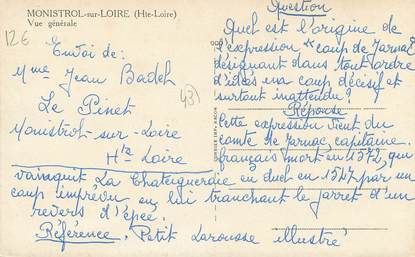 MONISTROL-sur-LOIRE (Hte-Loire)
Vue générale
12€
Envoi de:
Mme Jean Badel
Le Pinet
Monistrol-sur-Loire
Hte Loire
(43)
Question
Quel est l'origine de
l'expression "coup de Jarnac"
désignant dans tout ordre
d'idées un coup décisif et
surtout inattendu?
Réponse
Cette expression vient du
comte de Jarnac, capitaine
français mort en 1572, qui
vainquit La Chateigneraie en duel en 1547 par un
coup imprévu en lui tranchant le jarret d'un
revers d'épée.
Référence. Petit Larousse illustré